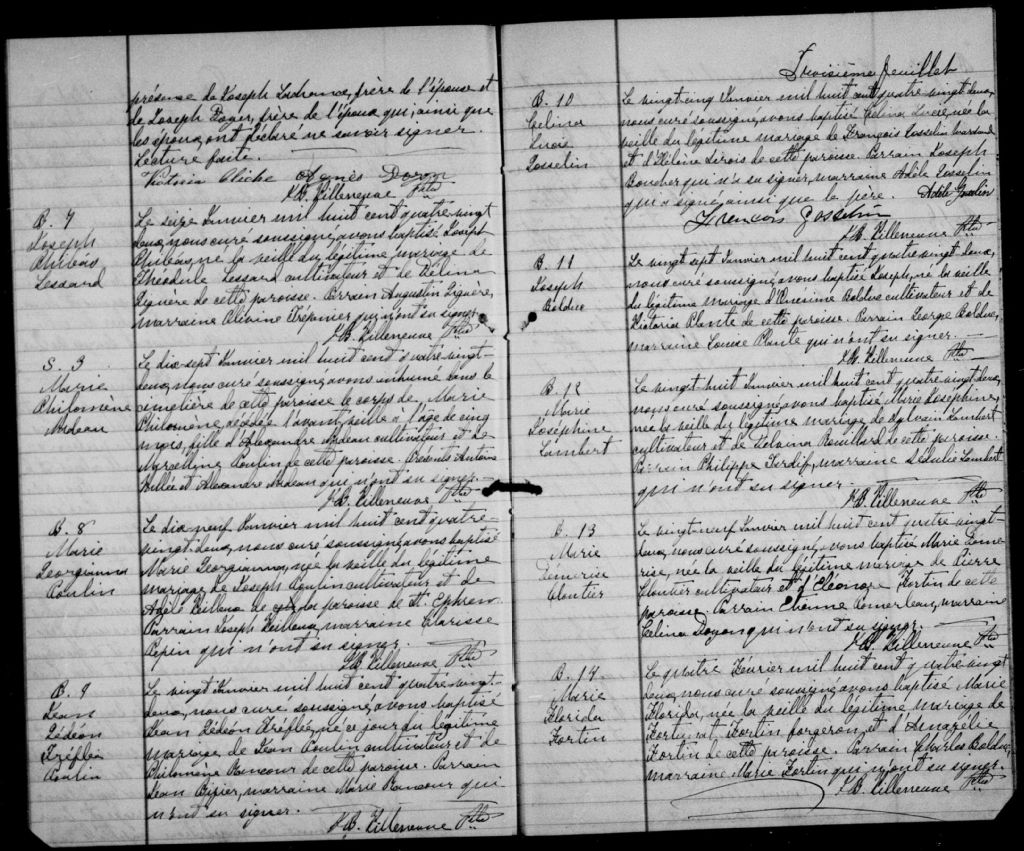 présence de Joseph Lafrance, frère de l'épouse et
de Joseph Boyer, frère de l'époux qui, ainsi que
les époux, ont déclaré ne savoir signer.
Lecture faite.
Victoria Cliche Agnès Doyon
J.B. Villeneuve Ptre
B. 7
Joseph
Philéas
Lessard
Le seize Janvier mil huit cent quatre vingt
deux, nous curé soussigné, avons baptisé Joseph
Philéas, né la veille du légitime mariage de
Théodule Lessard cultivateur et de Vélina
Giguère de cette paroisse. Parrain Augustin Giguère,
marraine Olivine Trépanier qui n'ont su signer.
J.B. Villeneuve Ptre
S. 3
Marie
Philomène
Nadeau
Le dix sept Janvier mil huit cent quatre vingt-
deux, nous curé soussigné, avons inhumé dans le
cimetière de cette paroisse le corps de Marie
Philomène, décédée l'avant veille à l'âge de cinq
mois, fille d'Alexandre Nadeau cultivateur et de
Marcelline Poulin de cette paroisse. Présents Antoine
et Alexandre Nadeau qui n'ont su signer.
J.B. Villeneuve Ptre
B. 8
Marie
Georgianna
Poulin
Le dix neuf Janvier mil huit cent quatre-
vingt-deux, nous curé soussigné, avons baptisé
Marie Georgianna, née la veille du légitime
mariage de Joseph Poulin cultivateur et de
Adèle Veilleux de la paroisse de St. Ephrem.
Parrain Joseph Veilleux, marraine Clarisse
Pepin qui n'ont su signer.
J.B. Villeneuve Ptre
B. 9
Jean
Gédéon
Tréfflé
Poulin
Le vingt Janvier mil huit cent quatre vingt-
deux, nous curé soussigné, avons baptisé
Jean Gédéon Tréfflé, né ce jour du légitime
mariage de Jean Poulin cultivateur et de
Philomène Rancour de cette paroisse. Parrain
Jean Bizier, marraine Marie Rancour qui
n'ont su signer.
J.B. Villeneuve Ptre
Troisième feuillet
B. 10
Celina
Gosselin
Le vingt-cinq Janvier mil huit cent quatre vingt deux,
nous curé soussigné, avons baptisé Celina née la
veille du légitime mariage de François Gosselin
et d'Hélène Lirois de cette paroisse. Parrain Joseph
Boucher qui n'a su signer, marraine Adèle Gosselin
qui a signé, ainsi que le père. Adèle Gosselin
Francois Gosselin
J.B. Villeneuve Ptre
B. 11
Joseph
Bolduc
Le vingt sept Janvier mil huit cent quatre vingt deux,
nous curé soussigné, avons baptisé Joseph, né la veille
du légitime mariage d'Onésime Bolduc cultivateur et de
Victoria Plante de cette paroisse. Parrain George Bolduc,
marraine Louise Plante qui n'ont su signer.
J.B. Villeneuve Ptre
B. 12
Marie
Joséphine
Lambert
Le vingt huit Janvier mil huit cent quatre vingt deux,
nous curé soussigné, avons baptisé Marie Joséphine,
née la veille du légitime mariage de Sylvain Lambert
cultivateur et de Rouillard de cette paroisse.
Parrain Philippe Tardif, marraine Sédulie Lambert
qui n'ont su signer.
J.B. Villeneuve Ptre
B. 13
Marie
Démerise
Cloutier
Le vingt-neuf Janvier mil huit cent quatre vingt-
deux, nous curé soussigné, avons baptisé Marie Déme
rise, née la veille du légitime mariage de Pierre
Cloutier cultivateur et d'Eléonore Fortin de cette
paroisse. Parrain Etienne Pomerleau, marraine
Celina Doyon qui n'ont su signer.
J.B. Villeneuve Ptre
B. 14
Marie
Florida
Fortin
Le quatre Février mil huit cent quatre vingt
deux, nous curé soussigné, avons baptisé Marie
Florida, née la veille du légitime mariage de
Fortunat Fortin forgeron, et d'Amarélie
Fortin de cette paroisse. Parrain Charles Bolduc,
marraine Marie Fortin qui n'ont su signer.
J.B. Villeneuve Ptre